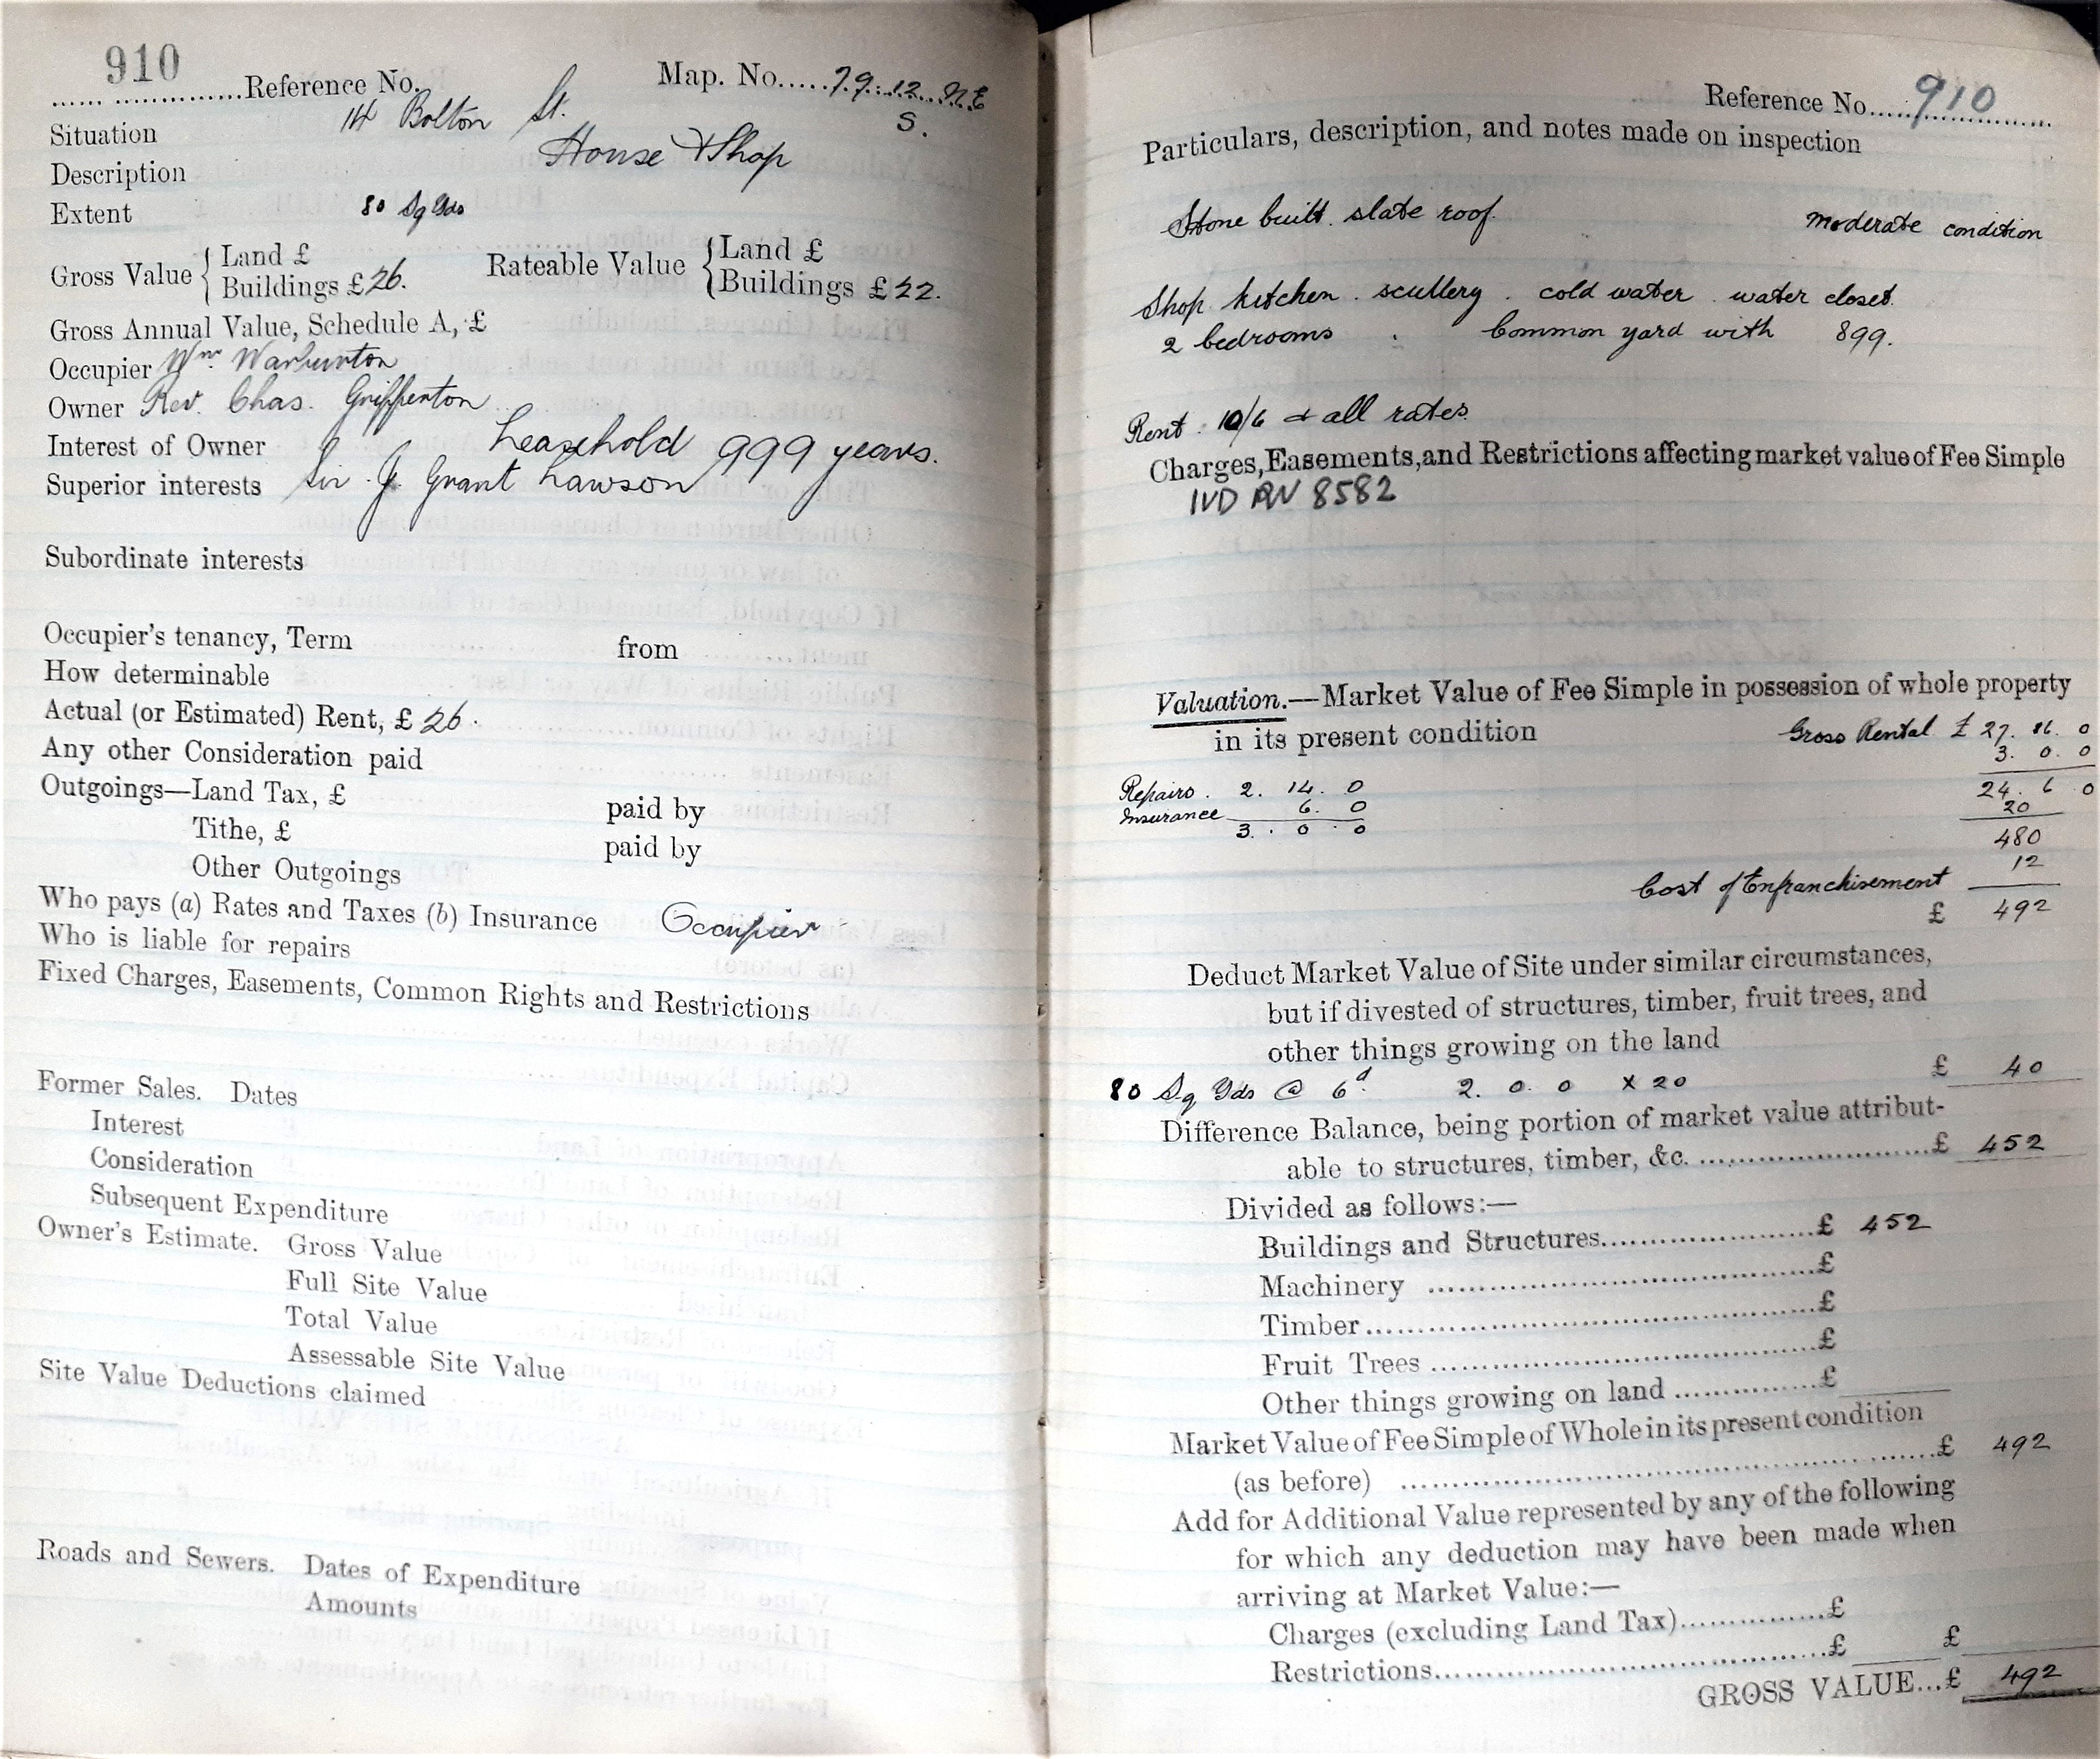 910
Reference No. Map. No. 79.12. N.E
S.
Situation 14 Bolton St.
Description House & Shop
Extent 80 Sq Yds
Gross Value { Land £
Buildings £26.
Rateable Value { Land £
Buildings £22.
Gross Annual Value, Schedule A, £
Occupier Wm. Warburton
Owner Rev. Chas.
Interest of Owner Leasehold 999 years.
Superior interests Sir J. Grant Lawson
Subordinate interests
Occupier's tenancy, Term from
How determinable
Actual (or Estimated) Rent, £ 26.
Any other Consideration paid
Outgoings—Land Tax, £ paid by
Tithe, £ paid by
Other Outgoings
Who pays (a) Rates and Taxes (b) Insurance Occupier
Who is liable for repairs
Fixed Charges, Easements, Common Rights and Restrictions
Former Sales. Dates
Interest
Consideration
Subsequent Expenditure
Owner's Estimate. Gross Value
Full Site Value
Total Value
Assessable Site Value
Site Value Deductions claimed
Roads and Sewers. Dates of Expenditure
Amounts
Reference No. 910
Particulars, description, and notes made on inspection
Stone built. slate roof. moderate condition
Shop kitchen. scullery. cold water. water closet.
2 bedrooms. Common yard with 899.
Rent. 10/6 & all rates.
Charges, Easements, and Restrictions affecting market value of Fee Simple
IVD RN 8582
Valuation.—Market Value of Fee Simple in possession of whole property
in its present condition Gross Rental £ 27. 6. 0
3. 0. 0
Repairs. 2. 14. 0 24. 6 0
Insurance 6. 0 20
3. 0. 0 480
12
Cost of Enfranchisement
£ 492
Deduct Market Value of Site under similar circumstances,
but if divested of structures, timber, fruit trees, and
other things growing on the land
80 Sq Yds @ 6d. 2. 0. 0 x 20 £ 40
Difference Balance, being portion of market value attribut-
able to structures, timber, &c. £ 452
Divided as follows:—
Buildings and Structures £ 452
Machinery £
Timber £
Fruit Trees £
Other things growing on land £
Market Value of Fee Simple of Whole in its present condition
(as before) £ 492
Add for Additional Value represented by any of the following
for which any deduction may have been made when
arriving at Market Value:—
Charges (excluding Land Tax) £
Restrictions £ £
GROSS VALUE...£ 492